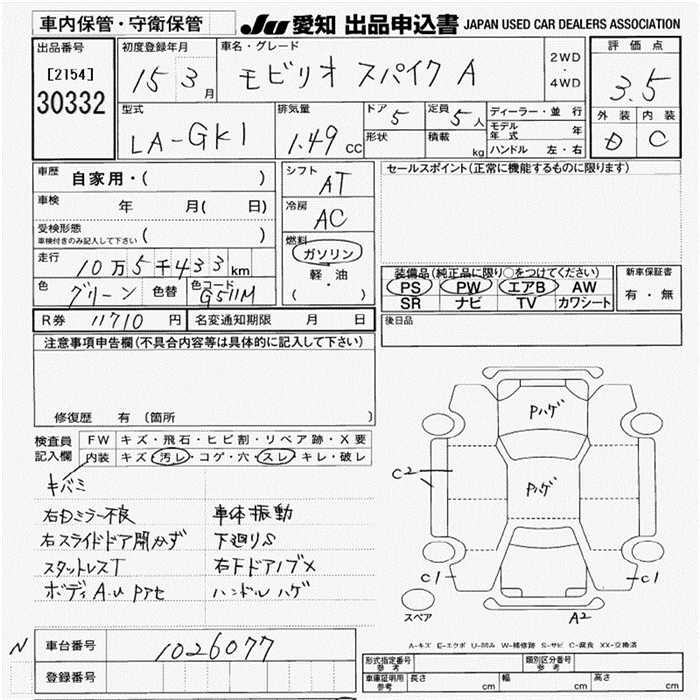 車内保管・守衛保管
JU 愛知 出品申込書 JAPAN USED CAR DEALERS ASSOCIATION
出品番号
[2154]
30332
初度登録年月
15 3月
車名・グレード
モビリオ スパイク A
2WD
・
4WD
評価点
3.5
外装 内装
D C
型式
LA-GK1
排気量
1.49 CC
ドア 5
定員 5人
形状
積載 kg
ディーラー・並行
モデル年式 年
ハンドル 左・右
車歴
自家用・( )
車検
年 月( 日)
受検形態
車検付きのみ記入して下さい ( )
走行
10万5千433km
色
グリーン
色替
色コード
G511M
シフト
AT
冷房
AC
燃料
ガソリン
軽・油
( )
セールスポイント(正常に機能するものに限ります)
装備品(純正品に限り○をつけてください)
PS PW エアB AW
SR ナビ TV カワシート
新車保証書
有・無
R券 11710円
名変通知期限 月 日
後日品
注意事項申告欄(不具合内容等は具体的に記入して下さい)
修復歴 有 〔箇所
検査員
記入欄
FW キズ・飛石・ヒビ割・リペア跡・X要
内装 キズ・汚レ・コゲ・穴・スレ・キレ・破レ
キバミ
右Dミラー不良
右スライドドア開かず
スタットレスT
ボディA・U Pアセ
車体振動
下廻りS
右下ドアノブ×
ハンドルハゲ
Pハゲ
Pハゲ
C2
C1
C1
A2
スペア
A-キズ E-エクボ U-凹み W-補修跡 S-サビ C-腐食 XX-交換済
N
車台番号
1026077
登録番号
形式指定番号
参考
類別区分番号
参考
車庫証明用
参考
長さ cm
幅 cm
高さ cm